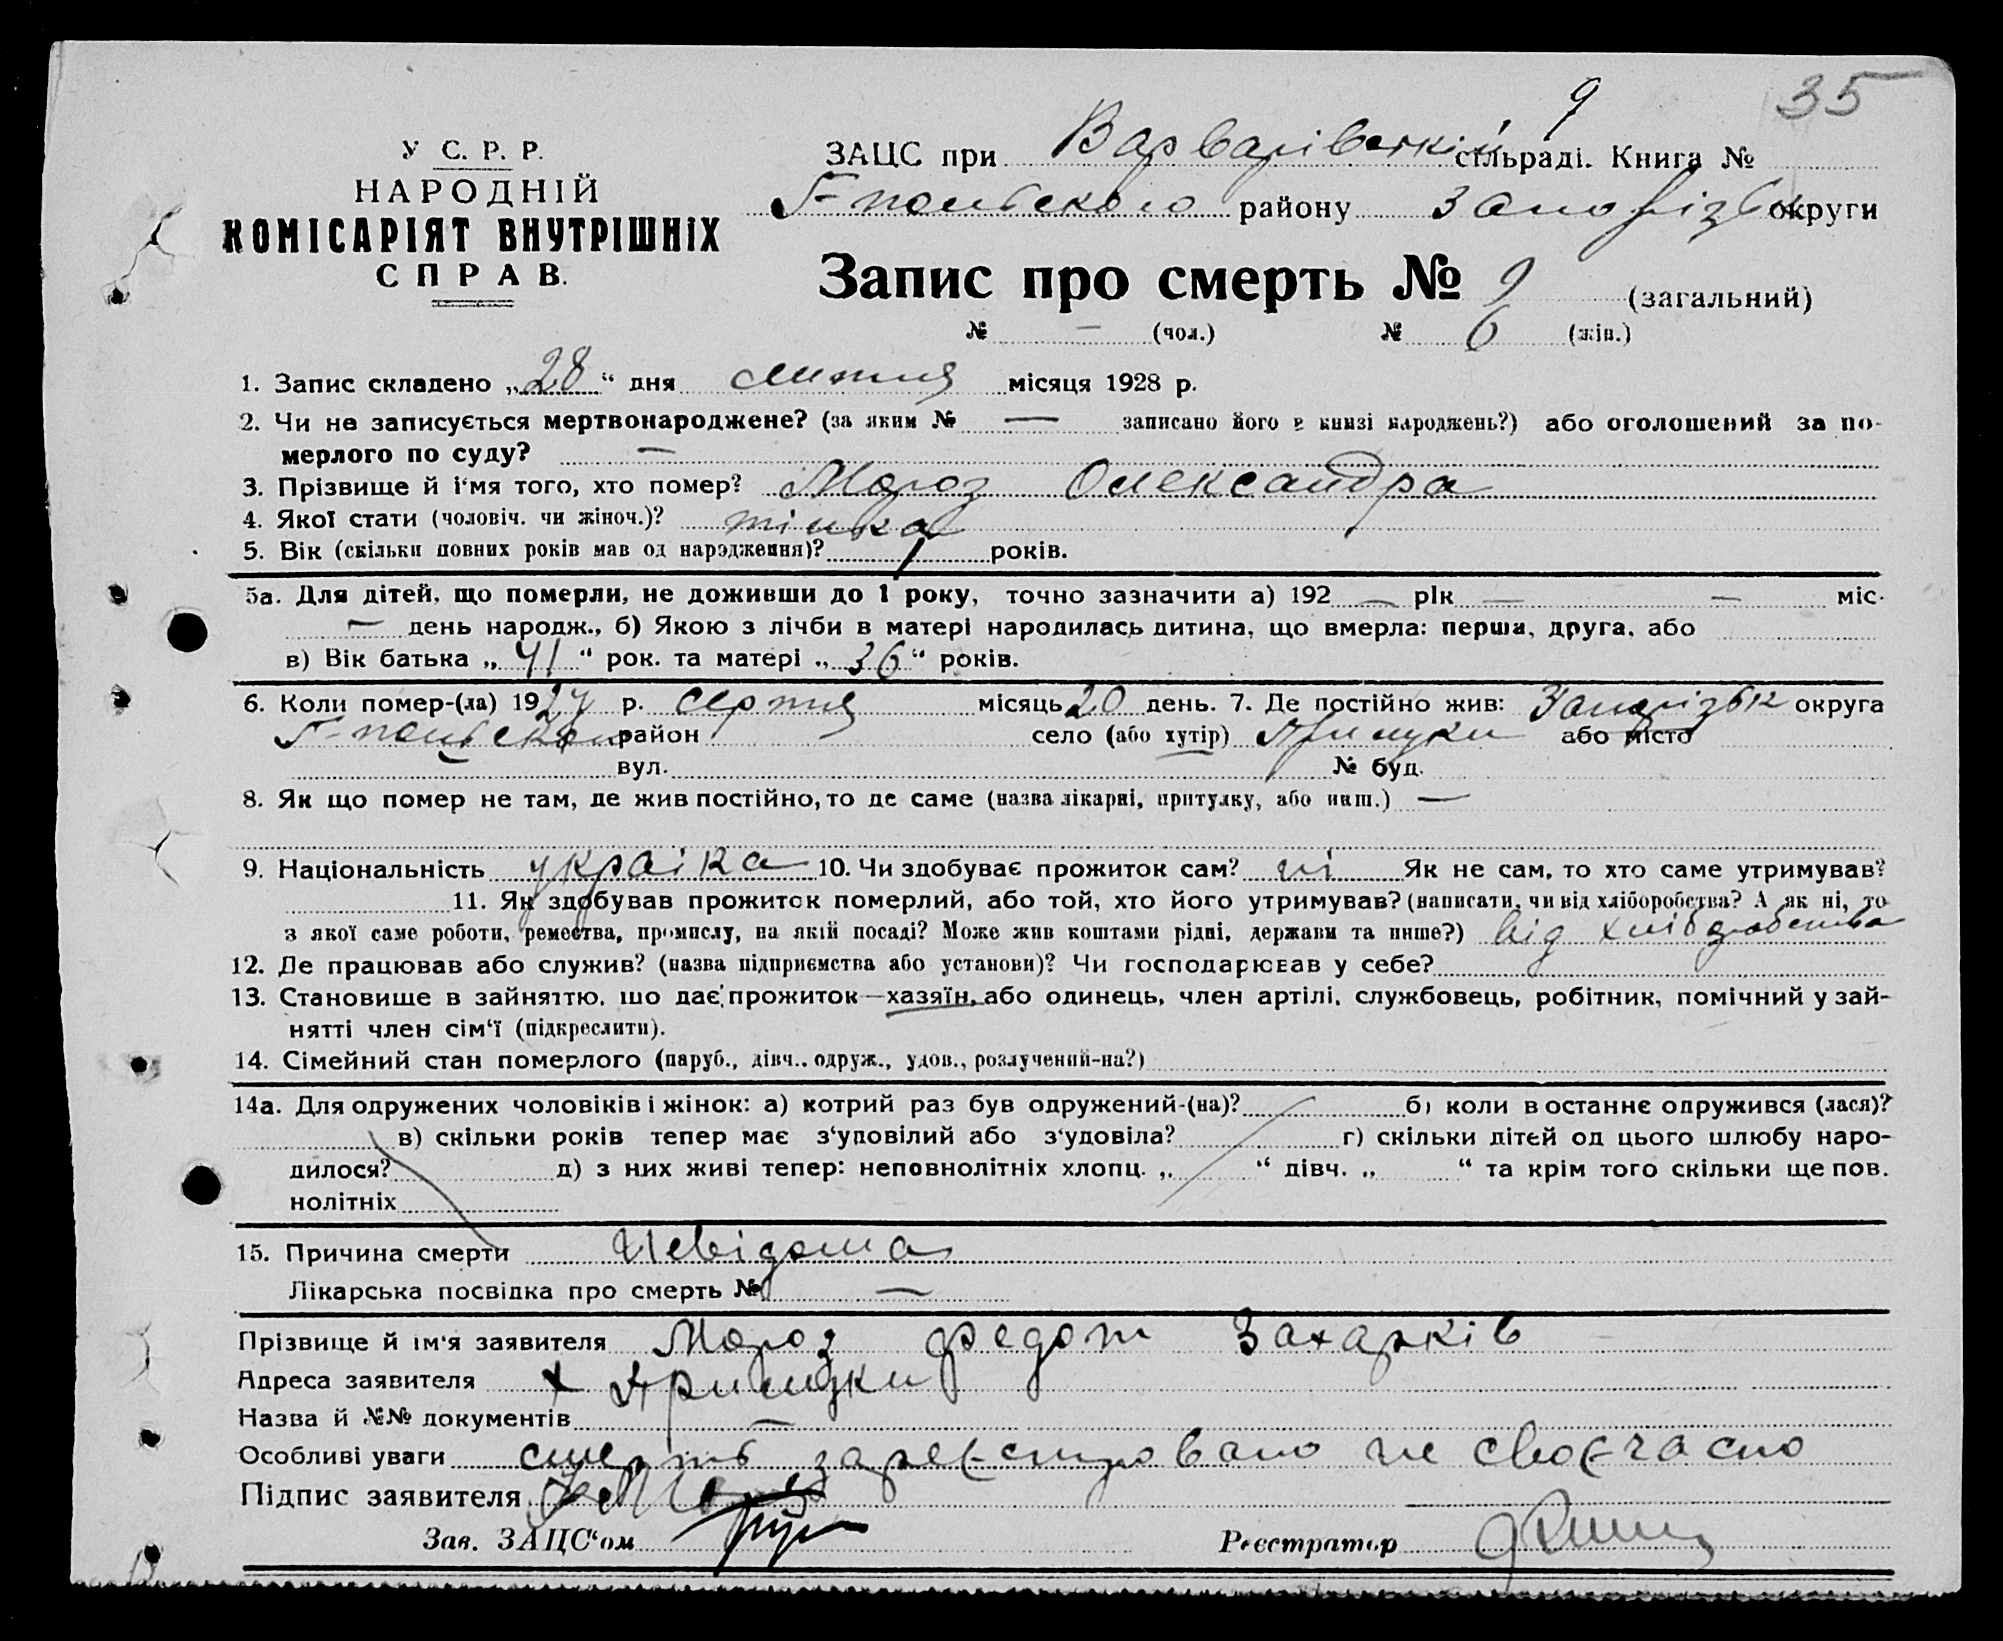 35
9
У С. Р. Р.
НАРОДНІЙ
КОМІСАРІЯТ ВНУТРІШНІХ
СПРАВ.
ЗАЦС при Варварівській сільраді. Книга №
Г-польского району Запорізьк округи
Запис про смерть № 9 (загальний)
№ — (чол.) № 6 (жін.)
1. Запис складено „28“ дня лютня місяця 1928 р.
2. Чи не записується мертвонароджене? (за яким № — записано його в книзі народжень?) або оголошений за по-
мерлого по суду? —
3. Прізвище й і‘мя того, хто помер? Мороз Олександра
4. Якої стати (чоловіч. чи жіноч.)? жінка
5. Вік (скільки повних років мав од народження)? 1 років.
5а. Для дітей, що померли, не доживши до 1 року, точно зазначити а) 192 — рік — — міс.
— день народж., б) Якою з лічби в матері народилась дитина, що вмерла: перша, друга, або
в) Вік батька „41“ рок. та матері „36“ років.
6. Коли помер-(ла) 1927 р. серпня місяць 20 день. 7. Де постійно жив: Запорізьк округа
Г-польском район село (або хутір) Прилуки або місто
вул. № буд.
8. Як що помер не там, де жив постійно, то де саме (назва лікарні, притулку, або инш.) —
9. Національність украінка 10. Чи здобуває прожиток сам? ні Як не сам, то хто саме утримував?
11. Як здобував прожиток померлий, або той, хто його утримував? (написати, чи від хліборобства? А як ні, то
з якої саме роботи, ремества, промислу, на якій посаді? Може жив коштами рідні, держави та инше?) від хліборобства
12. Де працював або служив? (назва підприємства або установи)? Чи господарював у себе?
13. Становище в зайняттю, що дає прожиток—хазяїн, або одинець, член артілі, службовець, робітник, помічний у зай-
нятті член сім‘ї (підкреслити).
14. Сімейний стан померлого (паруб., дівч., одруж., удов., розлучений-на?)
14а. Для одружених чоловіків і жінок: а) котрий раз був одружений-(на)? б) коли в останнє одружився (лася)?
в) скільки років тепер має з‘удовілий або з‘удовіла? г) скільки дітей од цього шлюбу наро-
дилося? д) з них живі тепер: неповнолітніх хлопц. „ “ дівч. „ “ та крім того скільки ще пов.
нолітніх
15. Причина смерти Невідома
Лікарська посвідка про смерть № —
Прізвище й ім‘я заявителя Мороз Федот Захарків
Адреса заявителя х Прилуки
Назва й №№ документів —
Особливі уваги смерть зареєстровано не своєчасно
Підпис заявителя
Зав. ЗАЦС‘ом
Реєстратор